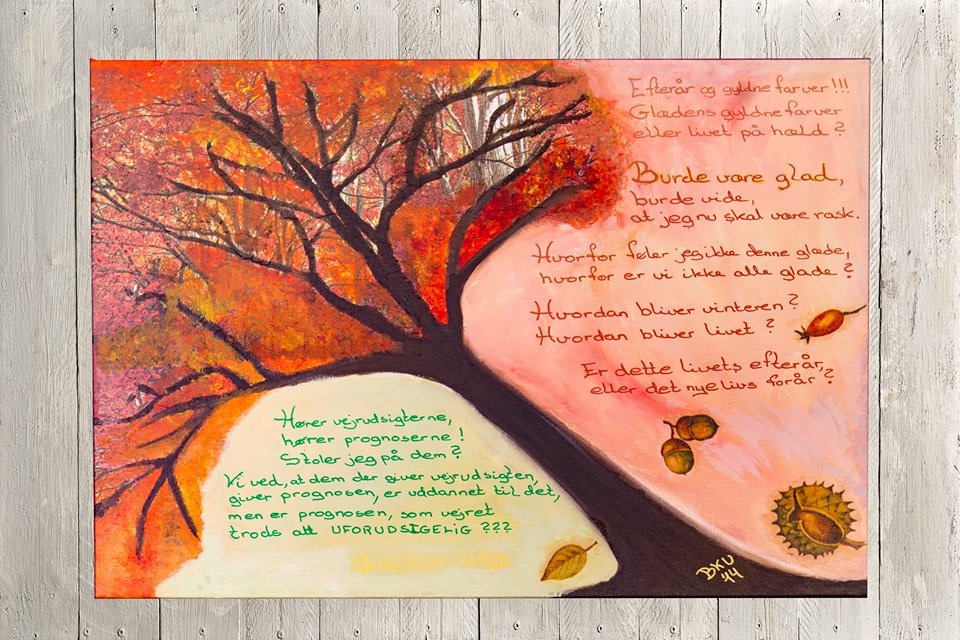 Efterår og gyldne farver!!!
Glædens gyldne farver
eller livet på hæld?
Burde være glad,
burde vide,
at jeg nu skal være rask.
Hvorfor føler jeg ikke denne glæde,
hvorfor er vi ikke alle glade?
Hvordan bliver vinteren?
Hvordan bliver livet?
Er dette livets efterår,
eller det nye livs forår?
Hører vejrudsigterne,
hører prognoserne!
Stoler jeg på dem?
Vi ved, at dem der giver vejrudsigten,
giver prognosen, er uddannet til det,
men er prognosen, som vejret
trods alt UFORUDSIGELIG ???
BKU
'14